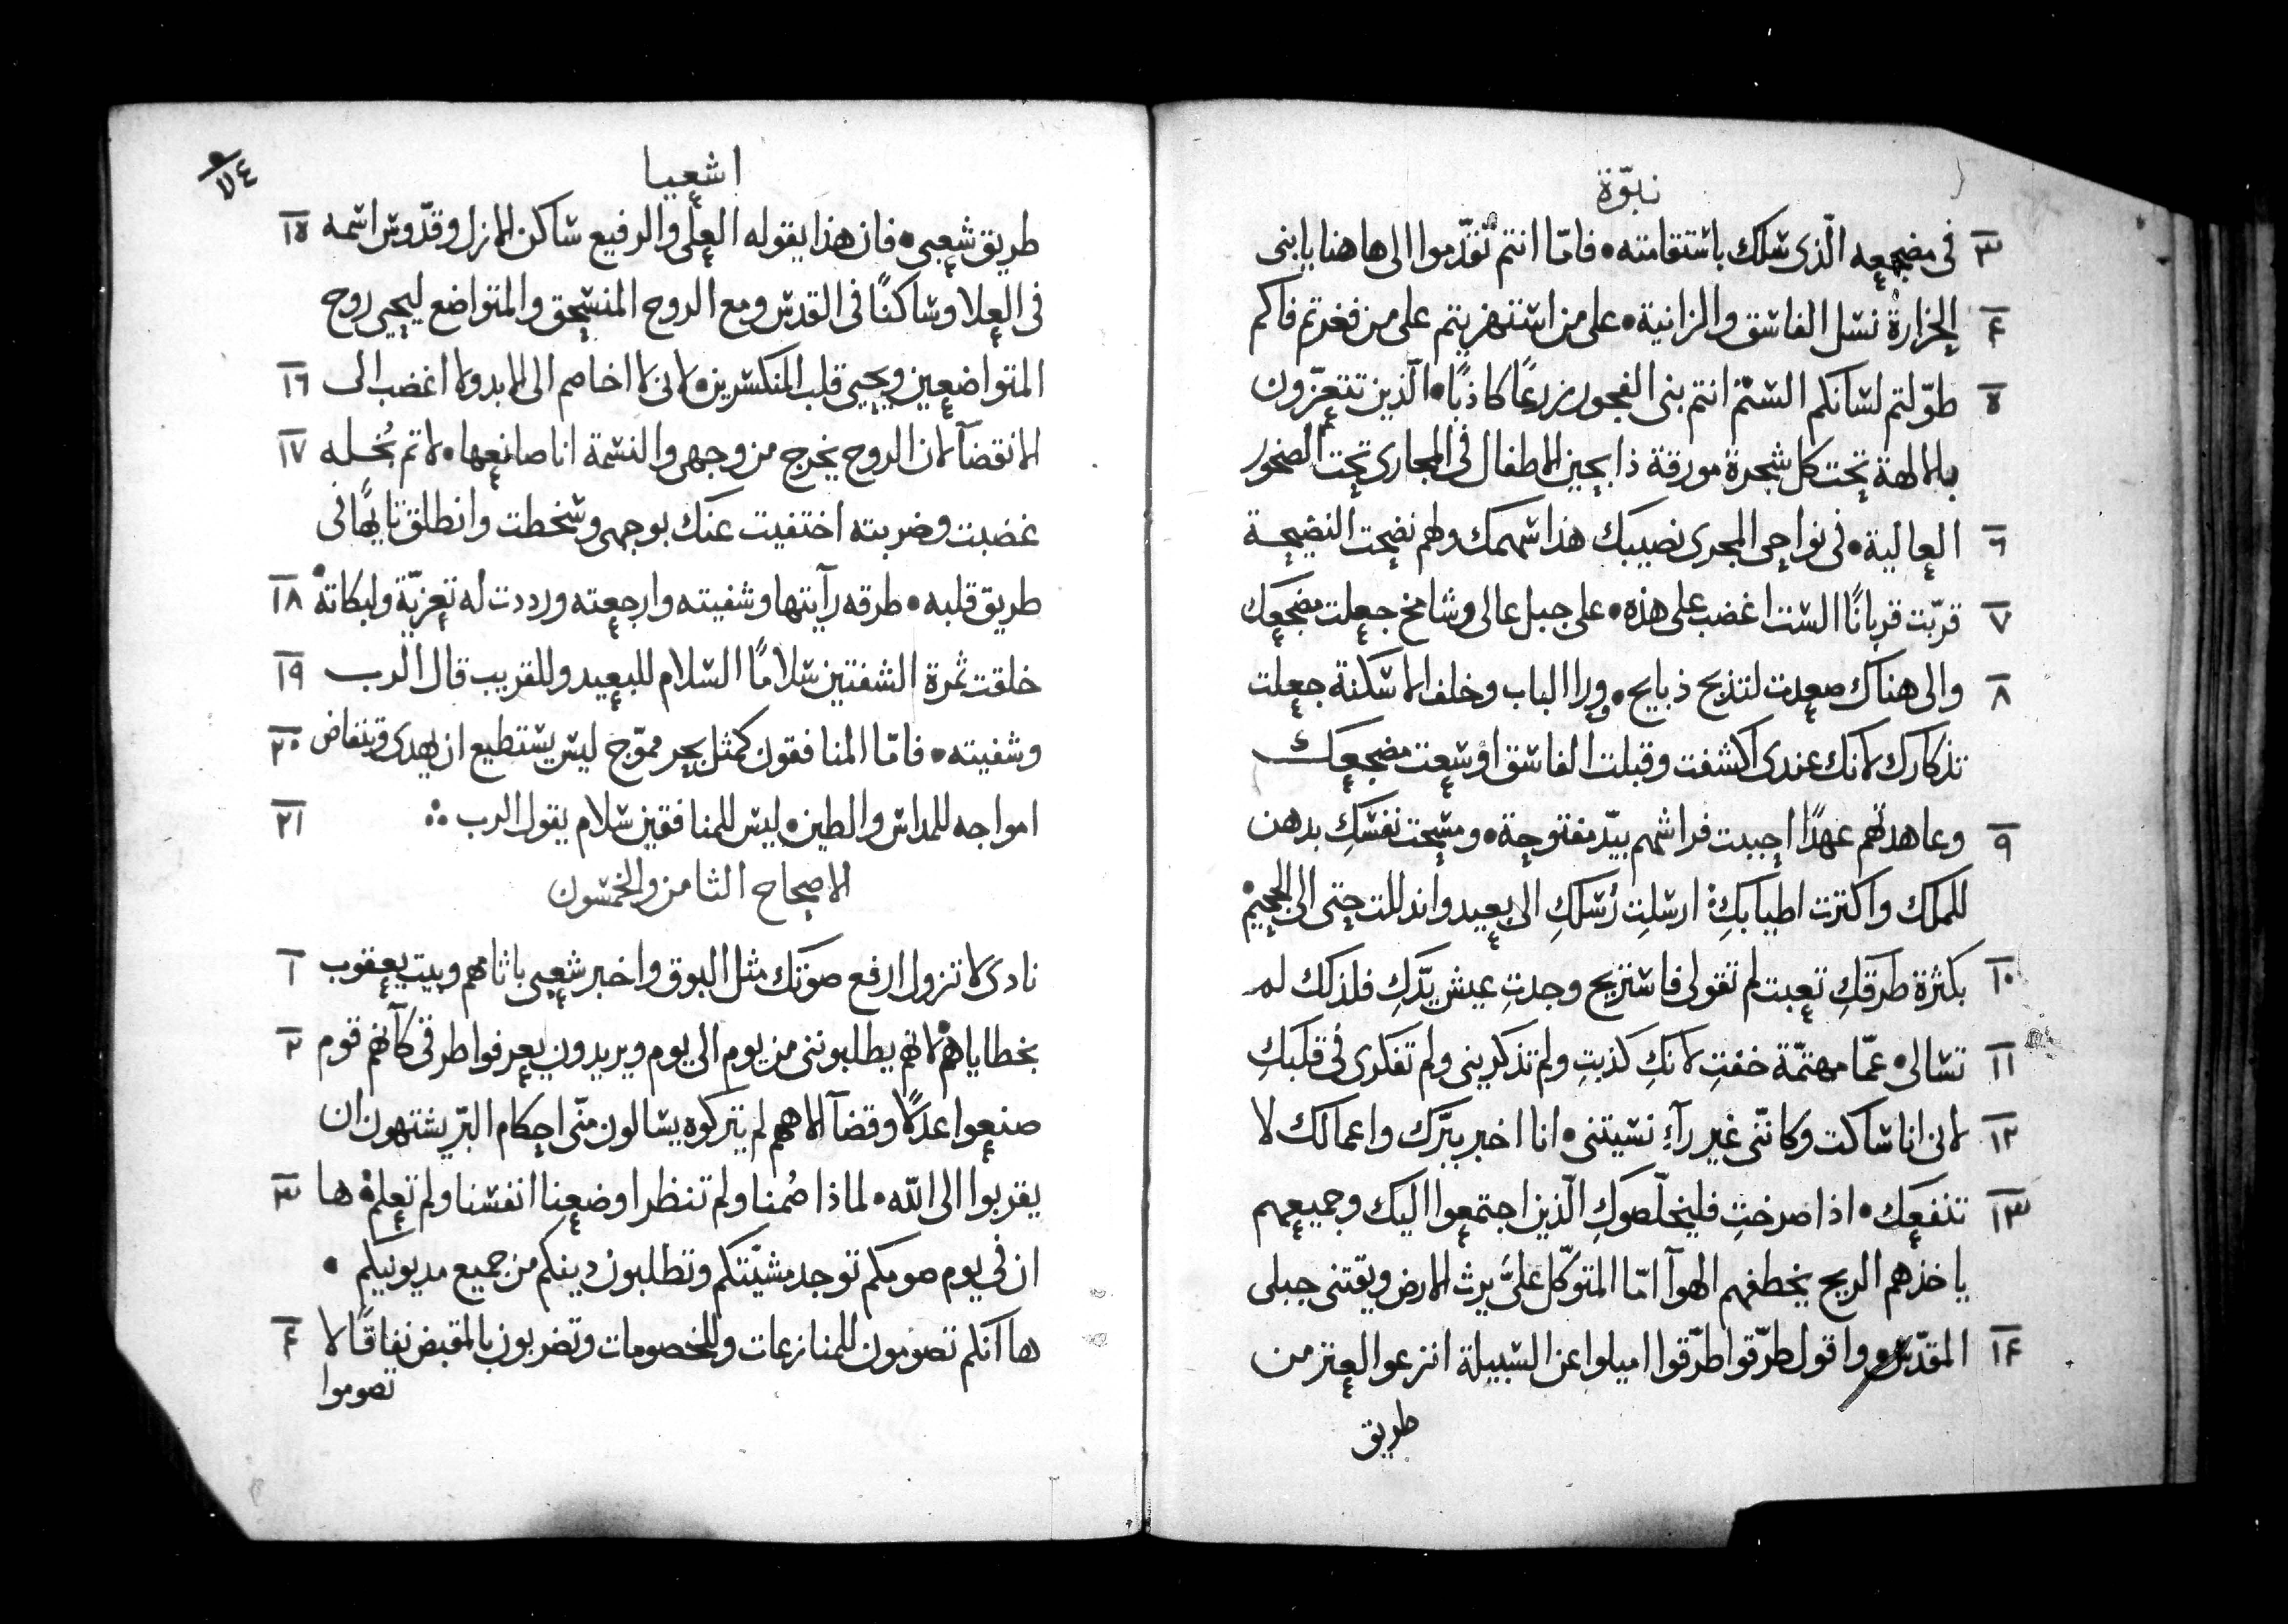 نبوّة
٣ فى مضجعه الّذى سلك باستقامته • فامّا انتم تقدّموا الى هاهنا يا بنى
٤ الجزارة نسل الفاسق والزانية • على من استهزيتم على من فغرتم فاكم
٥ طوّلتم لسانكم الستم انتم بنى الفجور زرعًا كاذبًا • الّذين تتعزّون
بالالهة تحت كل شجرة مورقة ذابحين الاطفال فى المجارى تحت الصخور
٦ العالية • فى نواحى المجرى نصيبك هذا سهمك ولهم نضحت النضيحة
٧ قرّبت قربانًا الست اغضب على هذه • على جبل عالى وشامخ جعلت مضجعك
٨ والى هناك صعدت لتذبح ذبايح • وورا الباب وخلف الاسكنة جعلت
تذكارك لانك عندى اكشفت وقبلت الفاسق اوسعت مضجعك
٩ وعاهدتهم عهدًا احببت فراشهم بيدٍ مفتوحة • ومسحت نفسكِ بدهن
للملك واكثرت اطيابكِ ارسلتِ رُسلكِ الى بعيد واندللت حتى الى الجحيم
١٠ بكثرة طرقكِ تعبت لم تقولى فاستريح وجدتِ عيش يدّكِ فلذلك لم
١١ تسالى • عمّا مهتمّة خفتِ لانكِ كذبتِ ولم تذكرينى ولم تفكرى فى قلبكِ
١٢ لانى انا ساكت وكاننّى غير رآءٍ نسيتنى • انا اخبر ببرّك واعمالك لا
١٣ تنفعك • اذا صرختِ فليخلّصوكِ الّذين اجتمعوا اليك وجميعهم
ياخذهم الريح يخطفهم الهوآ امّا المتوكّل علىَّ يرث الارض ويقتنى جبلى
١٤ المقدّس • واقول طرّقوا طرّقوا اميلوا عن السبيلة انزعوا العثر من
طريق
٧٤
اشعيا
طريق شعبى • فان هذا يقوله العلى والرفيع ساكن الازل وقدّوس اسمه ١٥
فى العلا وساكنًا فى القدس ومع الروح المنسحق والمتواضع ليحيى روح
المتواضعين ويحيى قلب المنكسرين • لانى لا اخاصم الى الابد ولا اغضب الى ١٦
الانقضآ لان الروح يخرج من وجهى والنسمة انا صانعها • لاثم بُخله ١٧
غضبت وضربته اختفيت عنك بوجهى وسخطت وانطلق تايهًا فى
طريق قلبه • طرقه رآيتها وشفيته وارجعته ورددت له تعزيّة ولبكاته ١٨
خلقت ثمرة الشفتين سلامًا السلام للبعيد وللقريب قال الرب ١٩
وشفيته • فامّا المنافقون كمثل بحر مموّج ليس يستطيع ان يهدى وتنفاض ٢٠
امواجه للمداس والطين • ليس للمنافقين سلام يقول الرب ٢١
الاصحاح الثامن والخمسون
نادى لا تزول ارفع صوتك مثل البوق واخبر شعبى باثامهم وبيت يعقوب ١
بخطاياهم • لانهم يطلبوننى من يومٍ الى يوم ويريدون يعرفوا طرقى كآنهم قوم ٢
صنعوا عدلًا وقضآ الاههم لم يتركوه يسالون منّى احكام البرّ يشتهون ان
يقربوا الى الله • لماذا صُمنا ولم تنظر اوضعنا انفسنا ولم تعلم ها ٣
ان فى يوم صومكم توجد مشيّتكم وتطلبون دينكم من جميع مديونيكم •
ها انكم تصومون للمنازعات وللخصومات وتضربون بالمقبض نفاقًا لا ٤
تصوموا